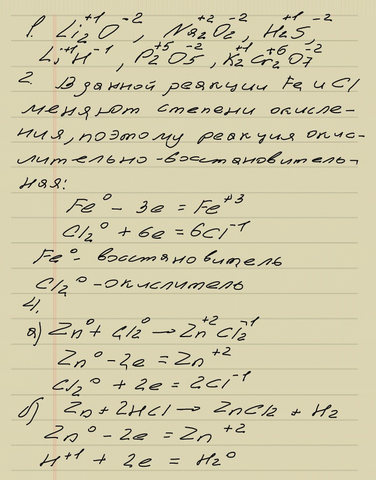 1. Li₂⁺¹O⁻², Na₂⁺²O₂⁻², H₂⁺¹S⁻²,
Li⁺¹H⁻¹, P₂⁺⁵O₅⁻², K₂⁺¹Cr₂⁺⁶O₇⁻²
2. В данной реакции Fe и Cl
меняют степени окисле-
ния, поэтому реакция окис-
лительно-восстановитель-
ная:
Fe⁰ - 3e = Fe⁺³
Cl₂⁰ + 6e = 6Cl⁻¹
Fe⁰ - восстановитель
Cl₂⁰ - окислитель
4.
а) Zn⁰ + Cl₂⁰ → Zn⁺²Cl₂⁻¹
Zn⁰ - 2e = Zn⁺²
Cl₂⁰ + 2e = 2Cl⁻¹
б) Zn + 2HCl → ZnCl₂ + H₂
Zn⁰ - 2e = Zn⁺²
H⁺¹ + 2e = H₂⁰